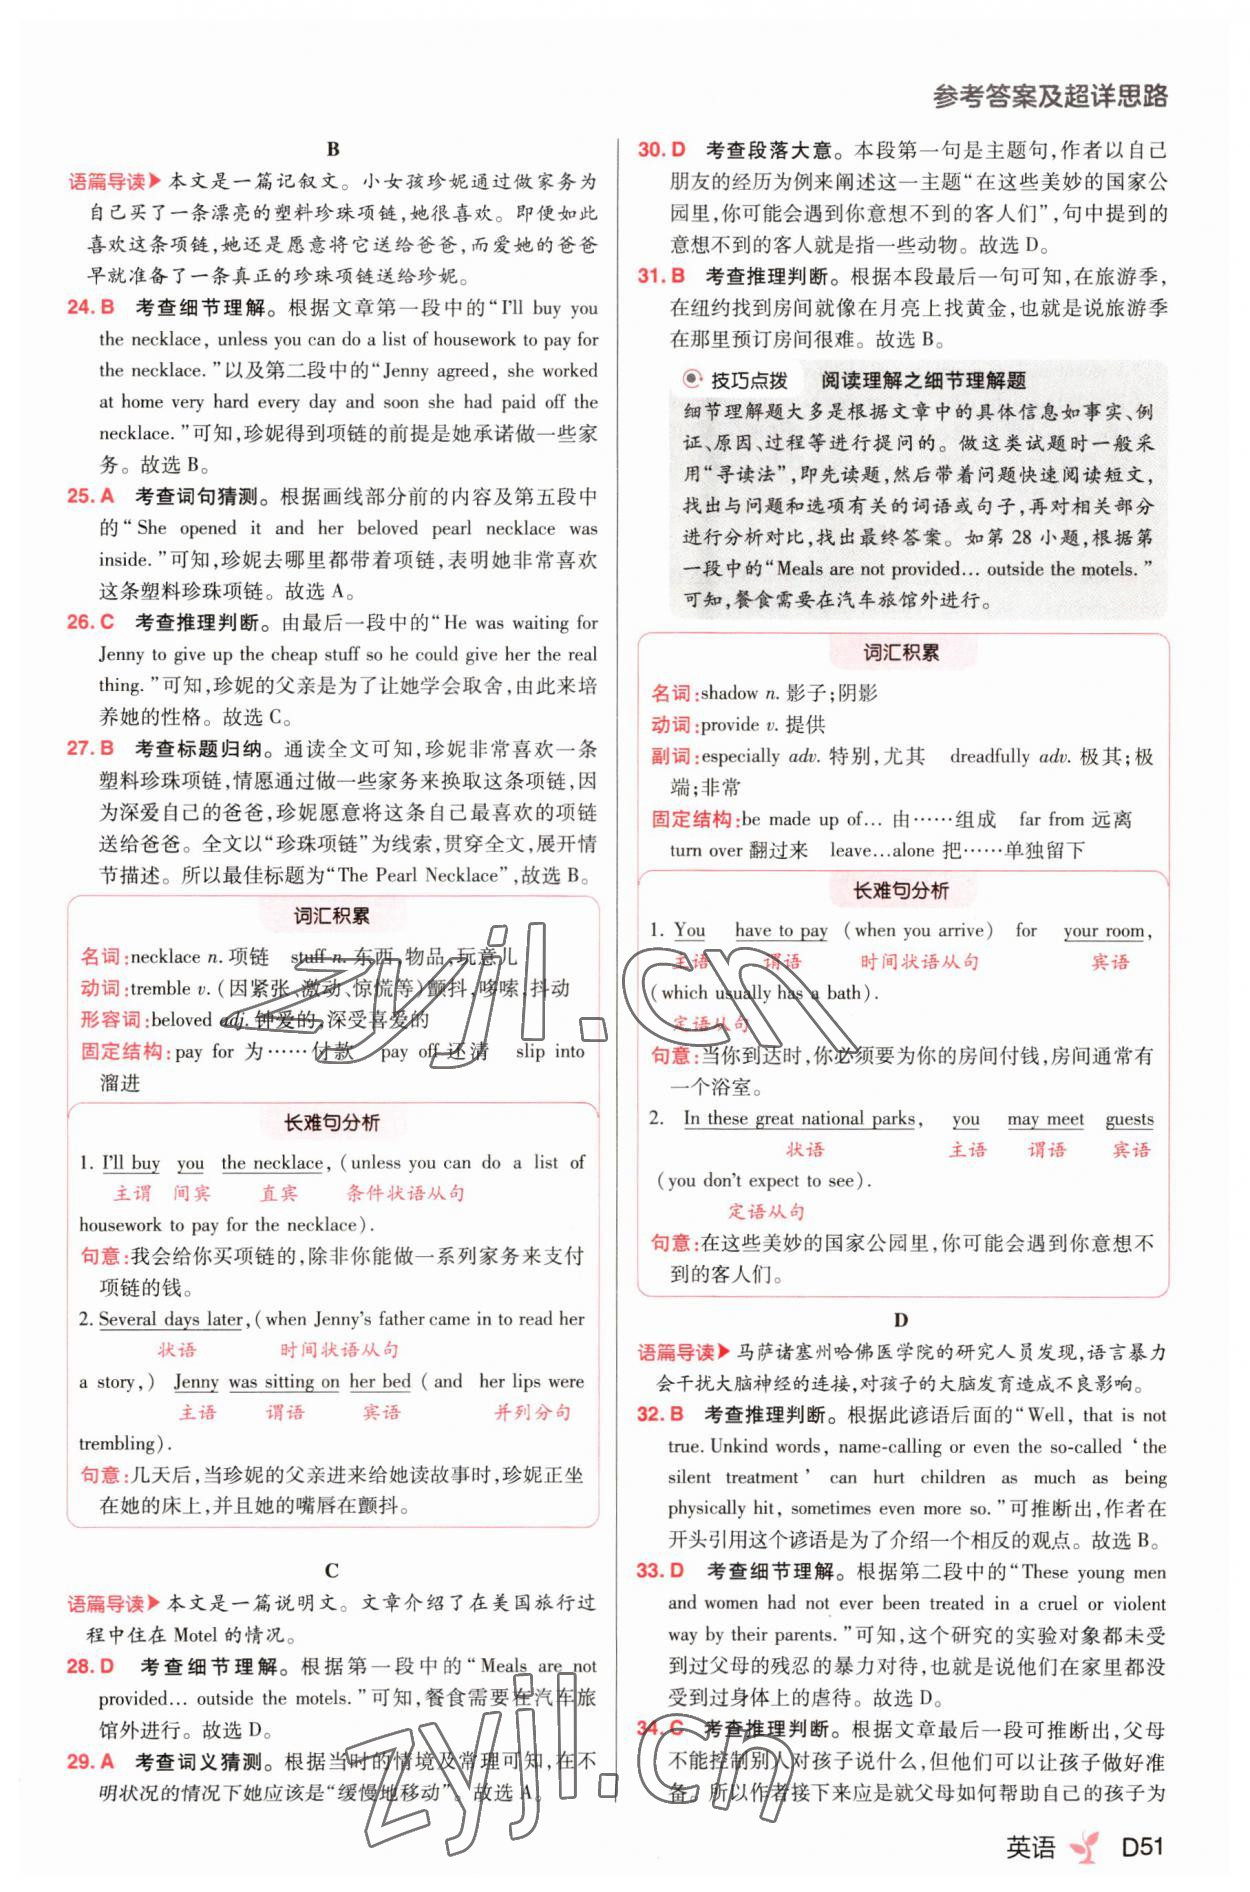 参考答案及超详思路
B
语篇导读▶ 本文是一篇记叙文。小女孩珍妮通过做家务为
自己买了一条漂亮的塑料珍珠项链,她很喜欢。即便如此
喜欢这条项链,她还是愿意将它送给爸爸,而爱她的爸爸
早就准备了一条真正的珍珠项链送给珍妮。
24. B 考查细节理解。根据文章第一段中的“I'll buy you
the necklace, unless you can do a list of housework to pay for
the necklace. ”以及第二段中的“Jenny agreed, she worked
at home very hard every day and soon she had paid off the
necklace. ”可知,珍妮得到项链的前提是她承诺做一些家
务。故选 B。
25. A 考查词句猜测。根据画线部分前的内容及第五段中
的“She opened it and her beloved pearl necklace was
inside. ”可知,珍妮去哪里都带着项链,表明她非常喜欢
这条塑料珍珠项链。故选 A。
26. C 考查推理判断。由最后一段中的“He was waiting for
Jenny to give up the cheap stuff so he could give her the real
thing. ”可知,珍妮的父亲是为了让她学会取舍,由此来培
养她的性格。故选 C。
27. B 考查标题归纳。通读全文可知,珍妮非常喜欢一条
塑料珍珠项链,情愿通过做一些家务来换取这条项链,因
为深爱自己的爸爸,珍妮愿意将这条自己最喜欢的项链
送给爸爸。全文以“珍珠项链”为线索,贯穿全文,展开情
节描述。所以最佳标题为“The Pearl Necklace”,故选 B。
词汇积累
名词:necklace n. 项链 stuff n. 东西,物品,玩意儿
动词:tremble v. (因紧张、激动、惊慌等)颤抖,哆嗦,抖动
形容词:beloved adj. 钟爱的,深受喜爱的
固定结构:pay for 为……付款 pay off 还清 slip into
溜进
长难句分析
1. I'll buy you the necklace, (unless you can do a list of
主谓 间宾 直宾 条件状语从句
housework to pay for the necklace).
句意:我会给你买项链的,除非你能做一系列家务来支付
项链的钱。
2. Several days later, (when Jenny's father came in to read her
状语 时间状语从句
a story,) Jenny was sitting on her bed (and her lips were
主语 谓语 宾语 并列分句
trembling).
句意:几天后,当珍妮的父亲进来给她读故事时,珍妮正坐
在她的床上,并且她的嘴唇在颤抖。
C
语篇导读▶ 本文是一篇说明文。文章介绍了在美国旅行过
程中住在 Motel 的情况。
28. D 考查细节理解。根据第一段中的“Meals are not
provided… outside the motels. ”可知,餐食需要在汽车旅
馆外进行。故选 D。
29. A 考查词义猜测。根据当时的情境及常理可知,在不
明状况的情况下她应该是“缓慢地移动”。故选 A。
30. D 考查段落大意。本段第一句是主题句,作者以自己
朋友的经历为例来阐述这一主题“在这些美妙的国家公
园里,你可能会遇到你意想不到的客人们”,句中提到的
意想不到的客人就是指一些动物。故选 D。
31. B 考查推理判断。根据本段最后一句可知,在旅游季,
在纽约找到房间就像在月亮上找黄金,也就是说旅游季
在那里预订房间很难。故选 B。
技巧点拨 阅读理解之细节理解题
细节理解题大多是根据文章中的具体信息如事实、例
证、原因、过程等进行提问的。做这类试题时一般采
用“寻读法”,即先读题,然后带着问题快速阅读短文,
找出与问题和选项有关的词语或句子,再对相关部分
进行分析对比,找出最终答案。如第 28 小题,根据第
一段中的“Meals are not provided… outside the motels. ”
可知,餐食需要在汽车旅馆外进行。
词汇积累
名词:shadow n. 影子;阴影
动词:provide v. 提供
副词:especially adv. 特别,尤其 dreadfully adv. 极其;极
端;非常
固定结构:be made up of… 由……组成 far from 远离
turn over 翻过来 leave…alone 把……单独留下
长难句分析
1. You have to pay (when you arrive) for your room,
主语 谓语 时间状语从句 宾语
(which usually has a bath).
定语从句
句意:当你到达时,你必须要为你的房间付钱,房间通常有
一个浴室。
2. In these great national parks, you may meet guests
状语 主语 谓语 宾语
(you don't expect to see).
定语从句
句意:在这些美妙的国家公园里,你可能会遇到你意想不
到的客人们。
D
语篇导读▶ 马萨诸塞州哈佛医学院的研究人员发现,语言暴力
会干扰大脑神经的连接,对孩子的大脑发育造成不良影响。
32. B 考查推理判断。根据此谚语后面的“Well, that is not
true. Unkind words, name-calling or even the so-called ‘the
silent treatment’ can hurt children as much as being
physically hit, sometimes even more so. ”可推断出,作者在
开头引用这个谚语是为了介绍一个相反的观点。故选 B。
33. D 考查细节理解。根据第二段中的“These young men
and women had not ever been treated in a cruel or violent
way by their parents. ”可知,这个研究的实验对象都未受
到过父母的残忍的暴力对待,也就是说他们在家里都没
受到过身体上的虐待。故选 D。
34. C 考查推理判断。根据文章最后一段可推断出,父母
不能控制别人对孩子说什么,但他们可以让孩子做好准
备。所以作者接下来应是就父母如何帮助自己的孩子为
英语 D51
zyjl.cn
zyjl.cn